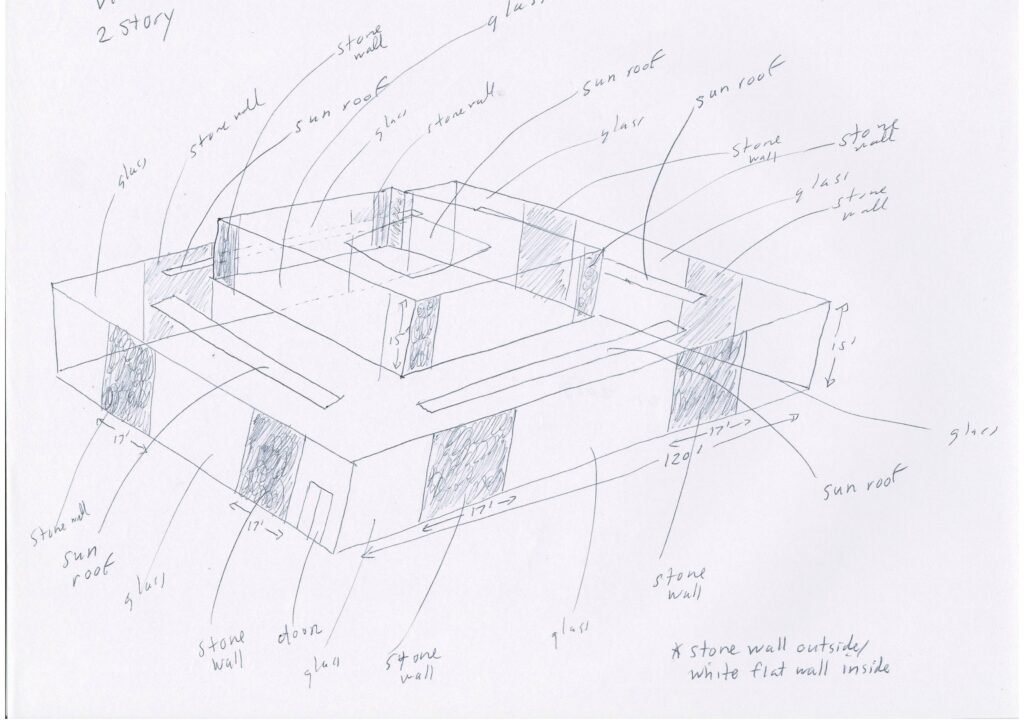 2 story
glass
stone
wall
sun roof
stone wall
sun roof
glass
stone wall
sun roof
glass
stone
wall
stone
wall
glass
stone
wall
glass
15'
15'
17'
17'
17'
17'
120'
glass
sun roof
stone wall
sun
roof
glass
stone
wall
door
glass
stone
wall
glass
stone
wall
* stone wall outside/
white flat wall inside